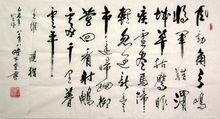 風勁角弓鳴
將軍獵渭
城草枯鷹眼
疾雪盡馬蹄
輕忽過新豐
市還歸細柳
營回看射鵰
處千里暮
雲平
王維 觀獵